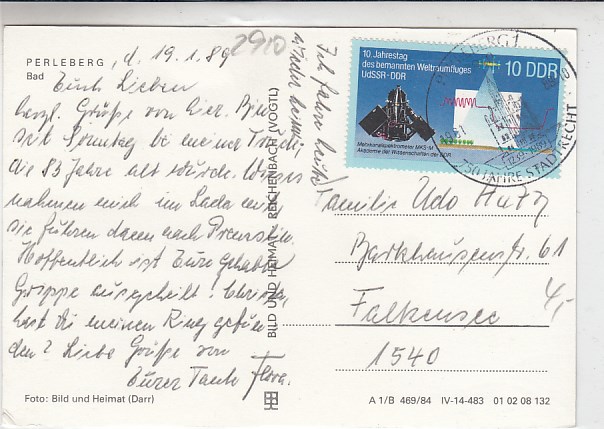 PERLEBERG, d. 19.1.89
Bad
Euch Lieben
herzl. Grüße von hier. Bin
seit Sonntag bei meine Trudi,
die 83 Jahre alt wurde.
nahmen mich im Lada mit,
sie fuhren dann nach
Hoffentlich ist Eure gehabte
Grippe ausgeheilt! Christa,
hast du meinen Ring gefun-
den? Liebe Grüße von
Eurer Tante Flora.
Ich fahre heute
wieder heim.
2910
Foto: Bild und Heimat (Darr)
BILD UND HEIMAT REICHENBACH (VOGTL)
10. Jahrestag
des bemannten Weltraumfluges
UdSSR-DDR
10 DDR
Multikanalspektrometer MKS-M
Akademie der Wissenschaften der DDR
PERLEBERG 1
750 JAHRE STADTRECHT
Familie Udo Hutz
Barkhausenstr. 61
4,-
Falkensee
1540
A 1/B 469/84 IV-14-483 01 02 08 132